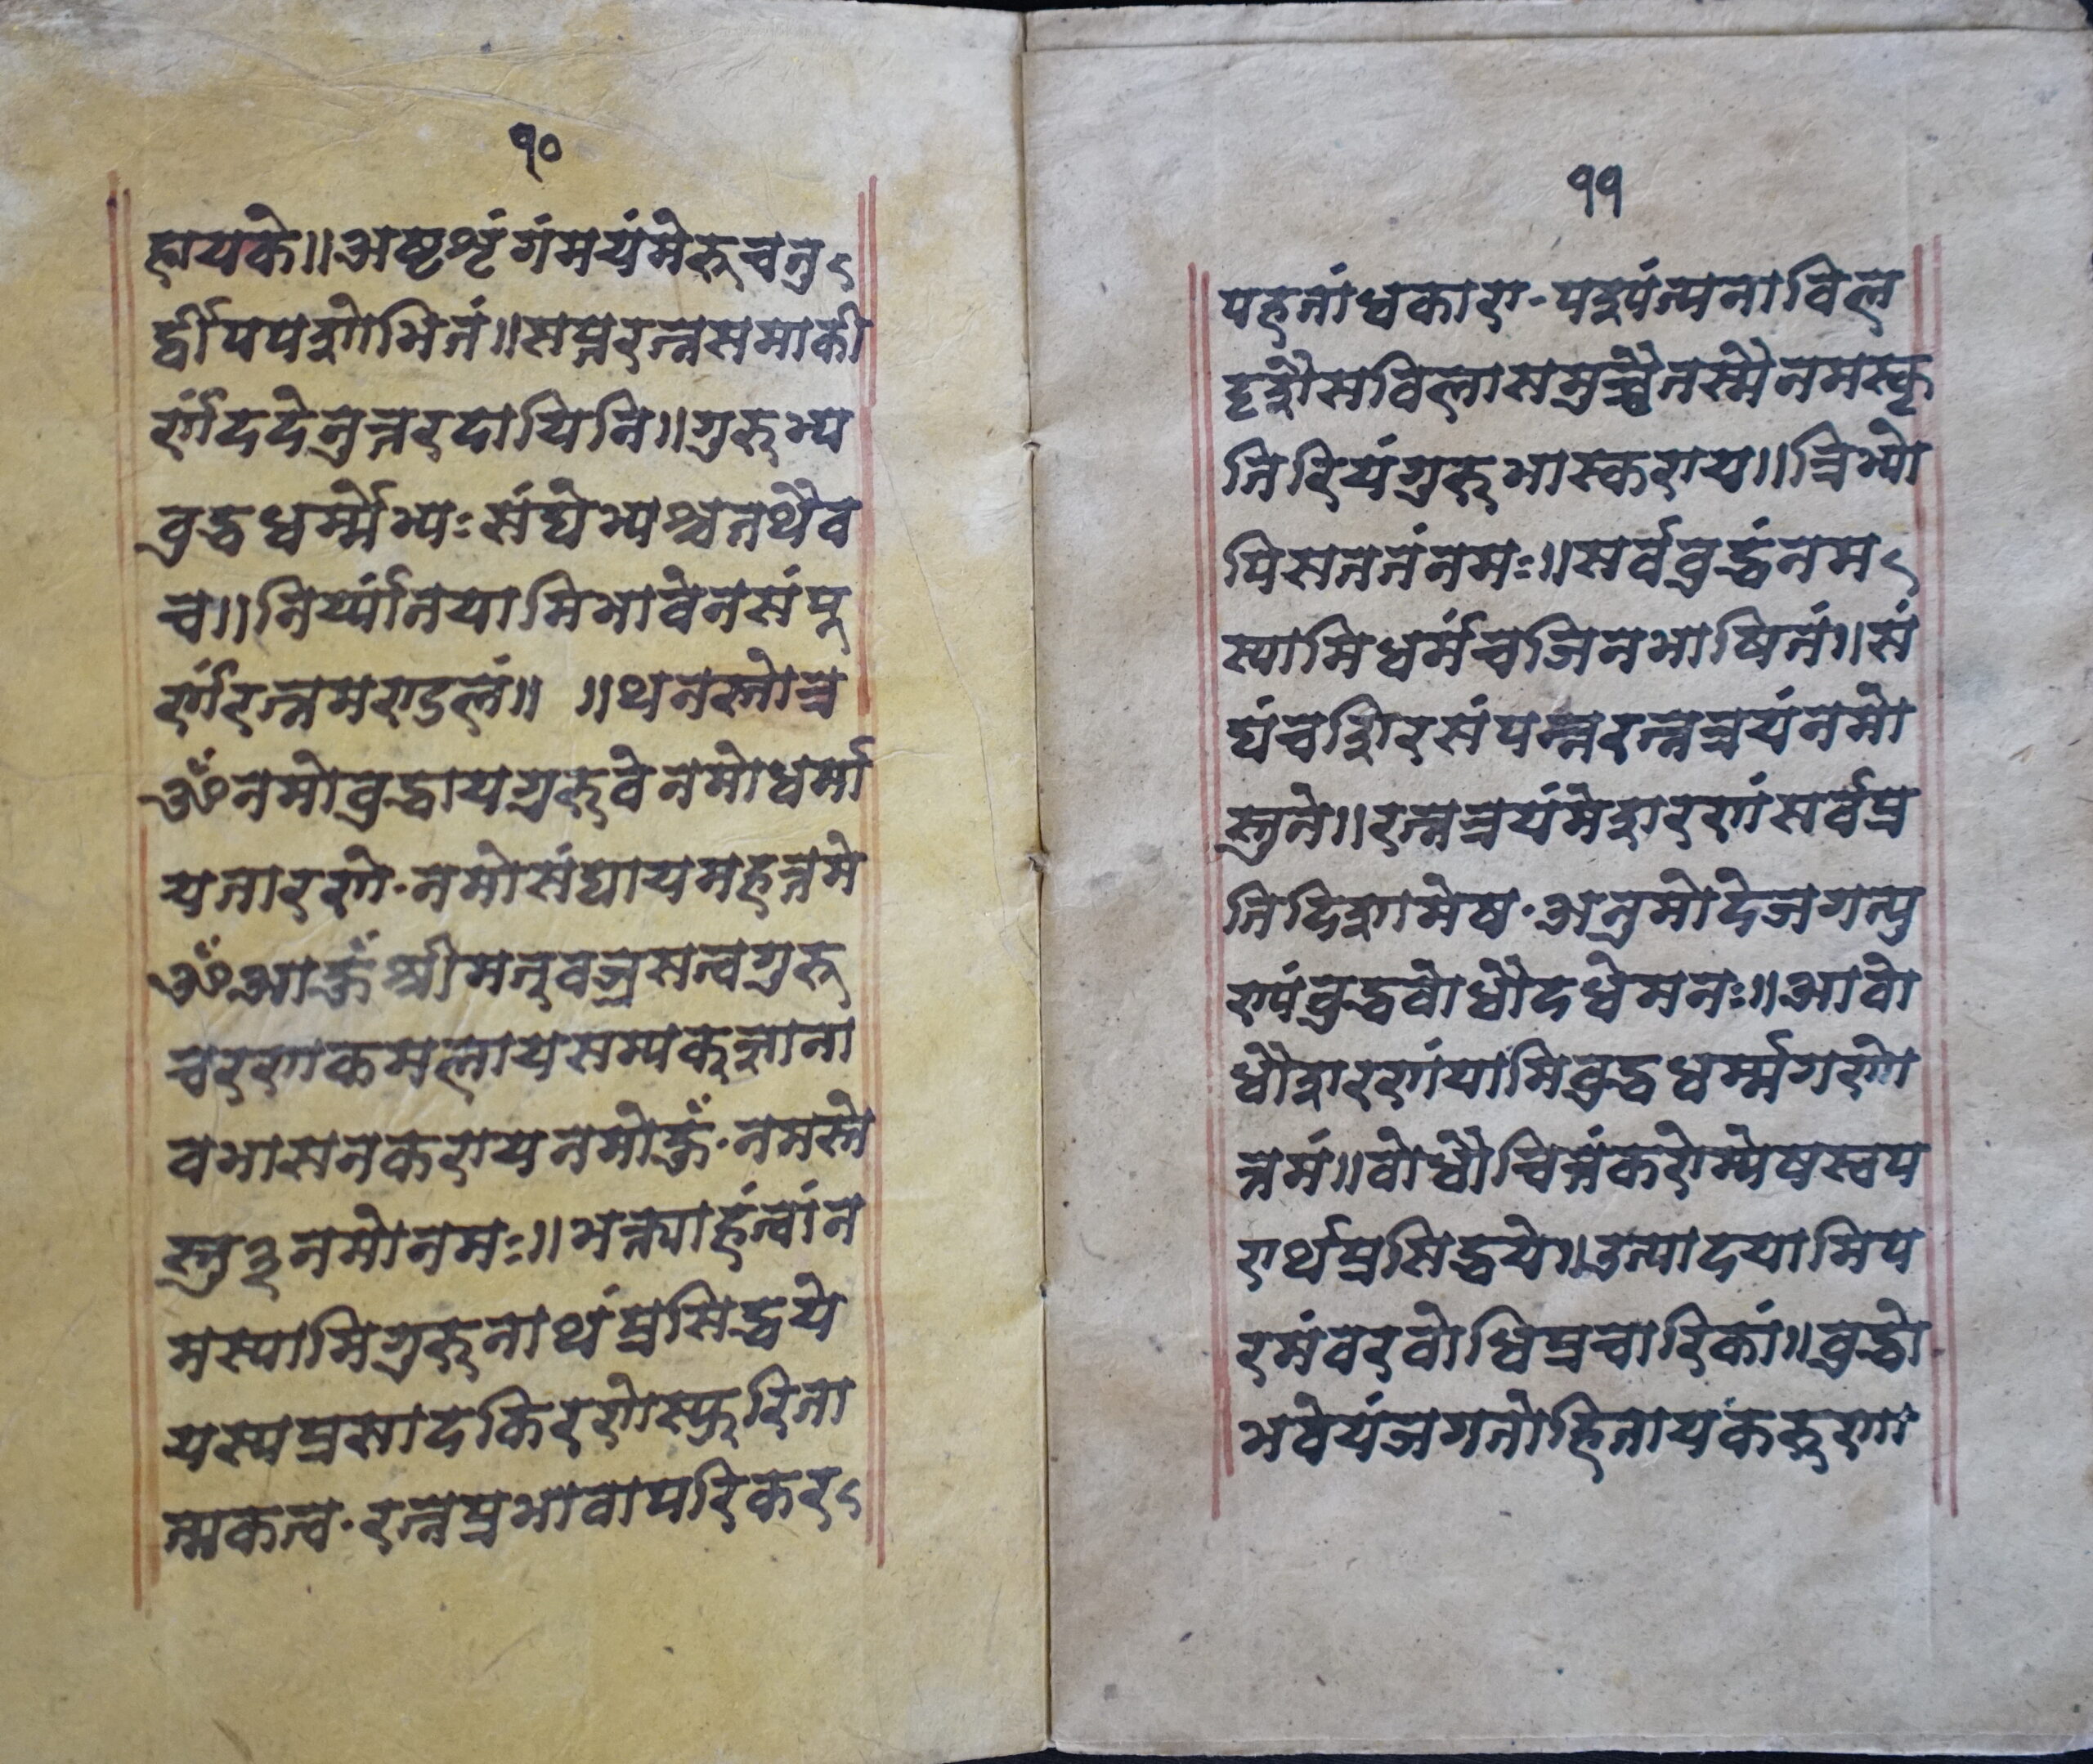 १०
ह्नायके॥अष्टशृंगंमयंमेरुचतु
र्द्वीपपशोभितं॥सप्तरत्नसमाकी
र्णंददेनुत्तरदायिनि॥गुरुभ्य
बुद्धधर्म्मेभ्यः संघेभ्यश्चतथैव
च॥निर्य्यांतयामिभावेनसंपू
र्णंरत्नमण्डलं॥ ॥थनस्तोत्र
ॐनमोबुद्धायगुरुवेनमोधर्मा
यतारणे·नमोसंघायमहत्तमे
ॐआहूँश्रीमत्‌वज्रसत्वगुरु
चरणकमलायसम्यक्‌ज्ञाना
वभासनकरायनमोहूँ·नमस्ते
स्तु३नमोनमः॥भक्त्याहंत्वांन
मस्यामिगुरुनाथंप्रसिद्धये
यस्यप्रसादकिरणेस्फुरिता
त्मकत्व·रत्नप्रभावापरिकर
११
पहतांधकारा·पशूपंत्यनाविल
दृशौसविलासमुच्चैतस्मैनमस्कृ
तिरियंगुरुभास्कराय॥त्रिभ्यो
पिसततंनमः॥सर्वबुद्धंनम
स्यामिधर्मंचजिनभाषितं॥सं
घंचशिरसंपन्नरत्नत्रयंनमो
स्तुते॥रत्नत्रयंमेशरणंसर्वप्र
तिदिशामेष·अनुमोदेजगत्पु
ण्यंबुद्धवोधौदधेमनः॥आवो
धौशरणंयामिबुद्धधर्म्मगणो
त्तमं॥वोधौचित्तंकरोम्येषस्वप
रार्थप्रसिद्धये॥उत्पादयामिप
रमंवरवोधिप्रचारिकां॥बुद्धो
भवेयंजगतोहितायकंरुणा